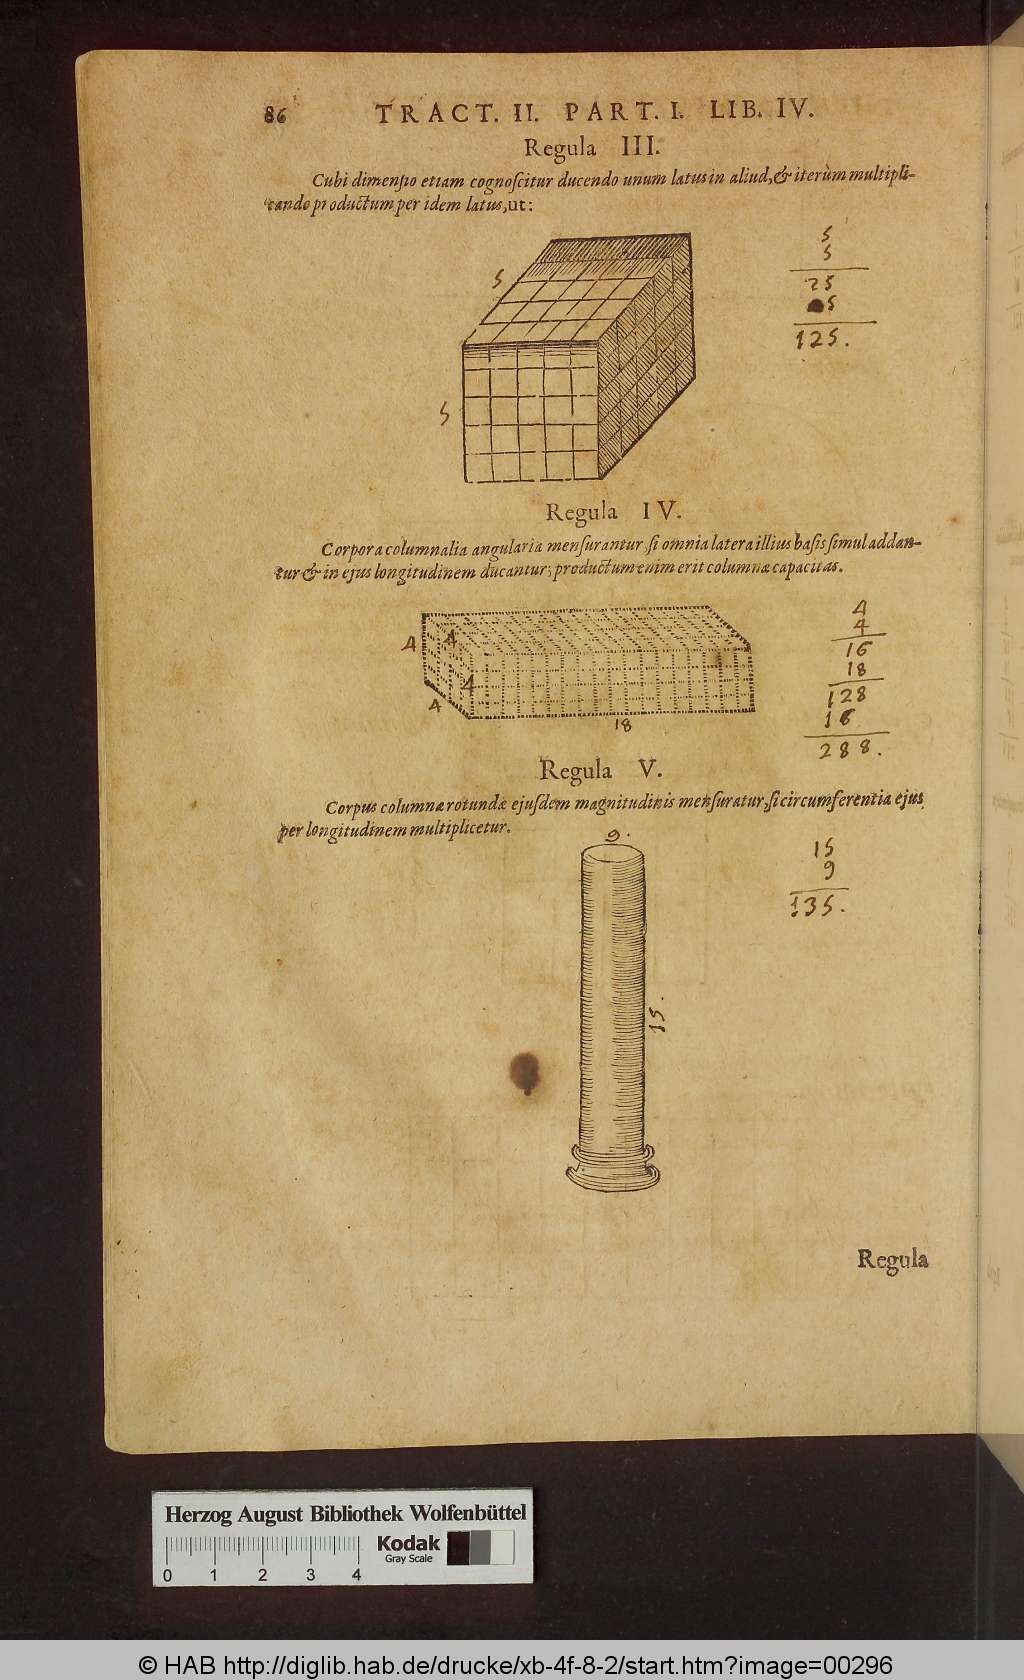 86 TRACT. II. PART. I. LIB. IV.
Regula III.
Cubi dimensio etiam cognoſcitur ducendo unum latus in aliud, & iterùm multipli-
cando productum per idem latus, ut:
5
5
5
5
25
5
125.
Regula IV.
Corpora columnalia angularia menſurantur, ſi omnia latera illius baſis ſimul addan-
tur & in ejus longitudinem ducantur; productum enim erit columnæ capacitas.
4
4
4
4
18
4
4
16
18
128
16
288.
Regula V.
Corpus columnæ rotundæ ejuſdem magnitudinis menſuratur, ſi circumferentia ejus
per longitudinem multiplicetur.
9.
15.
15
9
135.
Regula
Herzog August Bibliothek Wolfenbüttel
Kodak
Gray Scale
0 1 2 3 4
© HAB http://diglib.hab.de/drucke/xb-4f-8-2/start.htm?image=00296